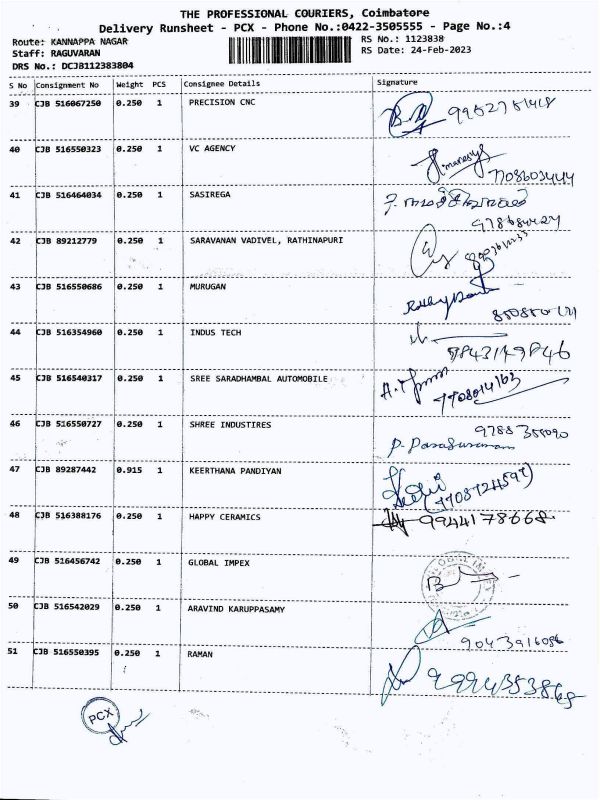 THE PROFESSIONAL COURIERS, Coimbatore
Delivery Runsheet - PCX - Phone No.:0422-3505555 - Page No.:4
Route: KANNAPPA NAGAR RS No.: 1123838
Staff: RAGUVARAN RS Date: 24-Feb-2023
DRS No.: DCJB112383804
S No Consignment No Weight PCS Consignee Details Signature
39 CJB 516067250 0.250 1 PRECISION CNC
40 CJB 516550323 0.250 1 VC AGENCY
7708603444
41 CJB 516464034 0.250 1 SASIREGA
42 CJB 89212779 0.250 1 SARAVANAN VADIVEL, RATHINAPURI
43 CJB 516550686 0.250 1 MURUGAN
44 CJB 516354960 0.250 1 INDUS TECH
9843149846
45 CJB 516540317 0.250 1 SREE SARADHAMBAL AUTOMOBILE
7708014163
46 CJB 516550727 0.250 1 SHREE INDUSTIRES
P. Parasuraman
47 CJB 89287442 0.915 1 KEERTHANA PANDIYAN
48 CJB 516388176 0.250 1 HAPPY CERAMICS
9944178668
49 CJB 516456742 0.250 1 GLOBAL IMPEX
GLOBAL IMPEX
50 CJB 516542029 0.250 1 ARAVIND KARUPPASAMY
9043916086
51 CJB 516550395 0.250 1 RAMAN
9994353868
PCX